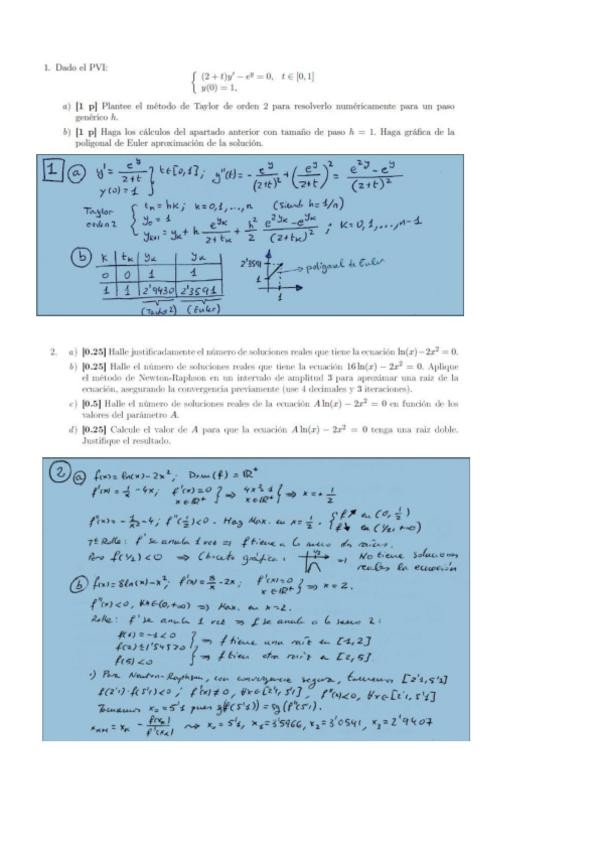 1. Dado el PVI:
{ (2 + t)y′ − e^y = 0, t ∈ [0, 1]
y(0) = 1,
a) [1 p] Plantee el método de Taylor de orden 2 para resolverlo numéricamente para un paso
genérico h.
b) [1 p] Haga los cálculos del apartado anterior con tamaño de paso h = 1. Haga gráfica de la
poligonal de Euler aproximación de la solución.
1 a) y' = e^y/(2+t) } t∈[0,1]; y''(t) = - e^y/(2+t)² + (e^y/(2+t))² = (e^2y - e^y)/(2+t)²
y(0) = 1
Taylor orden 2 { t_k = hk; k=0,1,...,n (siendo h=1/n)
y_0 = 1
y_k+1 = y_k + h e^y_k/(2+t_k) + h²/2 (e^2y_k - e^y_k)/(2+t_k)² ; k=0,1,...,n-1
b) k t_k y_k y_k
0 0 1 1
1 1 2'9430 2'3591
(Taylor 2) (Euler)
2'3591 1 1 → poligonal de Euler
2. a) [0.25] Halle justificadamente el número de soluciones reales que tiene la ecuación ln(x)−2x² = 0.
b) [0.25] Halle el número de soluciones reales que tiene la ecuación 16 ln(x) − 2x² = 0. Aplique
el método de Newton-Raphson en un intervalo de amplitud 3 para aproximar una raíz de la
ecuación, asegurando la convergencia previamente (use 4 decimales y 3 iteraciones).
c) [0.5] Halle el número de soluciones reales de la ecuación A ln(x) − 2x² = 0 en función de los
valores del parámetro A.
d) [0.25] Calcule el valor de A para que la ecuación A ln(x) − 2x² = 0 tenga una raíz doble.
Justifique el resultado.
2 a) f(x) = ln(x) - 2x²; Dom(f) = ℝ⁺
f'(x) = 1/x - 4x; f'(x)=0 x∈ℝ⁺ } ⇒ 4x²=1 x∈ℝ⁺ } ⇒ x=+1/2
f''(x) = -1/x² - 4; f''(1/2)<0. Hay Max. en x=1/2. { f↗ en (0,1/2) f↘ en (1/2,+∞)
Tª Rolle: f' se anula 1 vez ⇒ f tiene a lo sumo dos raíces.
Pero f(1/2)<0 ⇒ Cabeceo gráfica: 1/2 ⇒ No tiene soluciones
reales la ecuación
b) f(x) = 8ln(x) - x²; f'(x) = 8/x - 2x; f'(x)=0 x∈ℝ⁺ } ⇒ x=2.
f''(x)<0, ∀x∈(0,+∞) ⇒ Max. en x=2.
Rolle: f' se anula 1 vez ⇒ f se anula a lo sumo 2:
f(1) = -1<0
f(2)=1'5451>0 } ⇒ f tiene una raíz en [1,2]
f(5)<0 } ⇒ f tiene otra raíz en [2,5].
·) Para Newton-Raphson, con convergencia segura, tomamos [2'1,5'1]
f(2'1)·f(5'1)<0; f'(x)≠0, ∀x∈[2'1,5'1], f''(x)<0, ∀x∈[2'1,5'1]
Tomamos x_0=5'1 pues sg(f(5'1)) = sg(f''(5'1).
x_k+1 = x_k - f(x_k)/f'(x_k) ⇝ x_0=5'1, x_1=3'5966, x_2=3'0541, x_3=2'9407